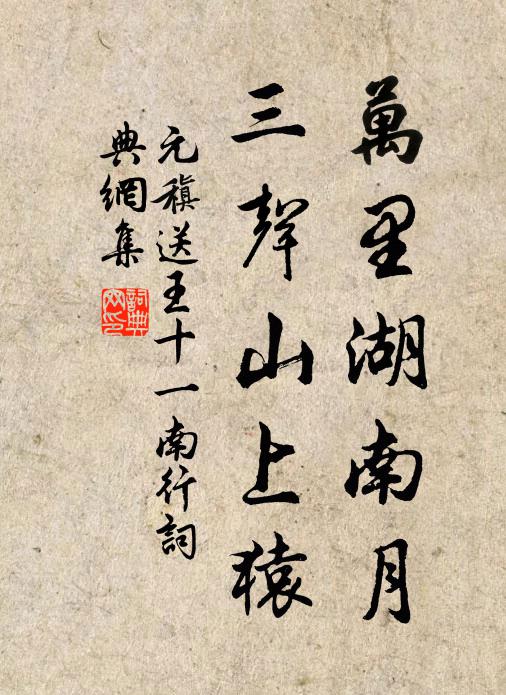 萬里湖南月
三聲山上猿
元稹送王十一南行詞
典網集
詞典網印